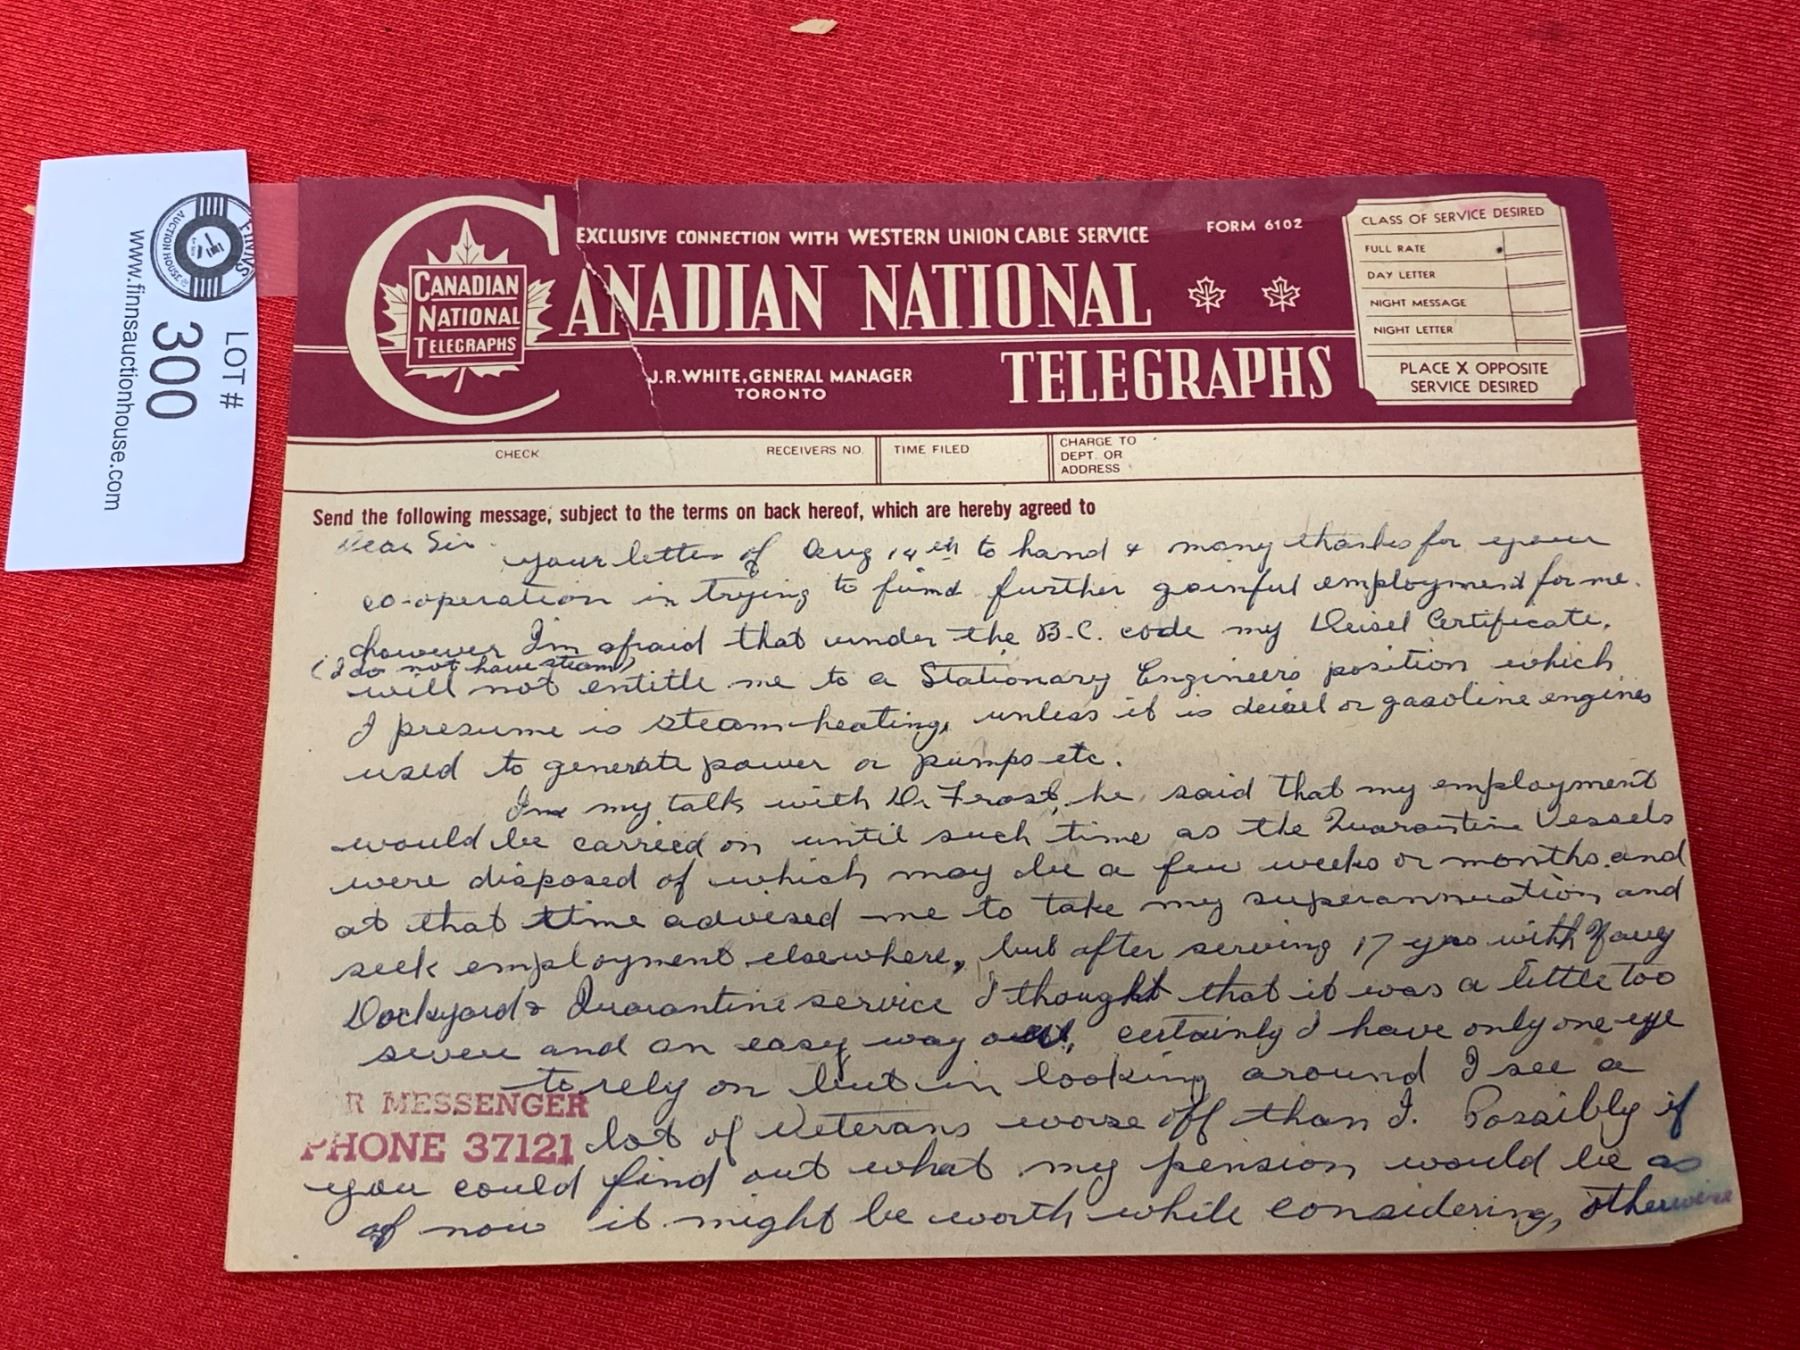 FINNS
AUCTION HOUSE
LOT #
300
www.finnsauctionhouse.com
EXCLUSIVE CONNECTION WITH WESTERN UNION CABLE SERVICE
FORM 6102
CANADIAN NATIONAL TELEGRAPHS
CANADIAN NATIONAL
TELEGRAPHS
J. R. WHITE, GENERAL MANAGER
TORONTO
CLASS OF SERVICE DESIRED
FULL RATE
DAY LETTER
NIGHT MESSAGE
NIGHT LETTER
PLACE X OPPOSITE
SERVICE DESIRED
CHECK
RECEIVERS NO.
TIME FILED
CHARGE TO
DEPT. OR
ADDRESS
Send the following message, subject to the terms on back hereof, which are hereby agreed to
Dear Sir.
your letter of Aug 14th to hand & many thanks for your
co-operation in trying to find further gainful employment for me.
however I'm afraid that under the B.C. code my Deisel Certificate.
(I do not have steam)
will not entitle me to a Stationary Engineers position which
I presume is steam-heating, unless it is deisel or gasoline engines
used to generate power or pumps etc.
In my talk with Dr Frost, he said that my employment
would be carried on until such time as the Quarantine Vessels
were disposed of which may be a few weeks or months. and
at that time advised me to take my superannuation and
seek employment elsewhere, but after serving 17 yrs with Navy
Dockyard & Quarantine service I thought that it was a little too
severe and an easy way out, certainly I have only one eye
to rely on but in looking around I see a
R MESSENGER
PHONE 37121
lot of Veterans worse off than I. Possibly if
you could find out what my pension would be as
of now it might be worth while considering, otherwise